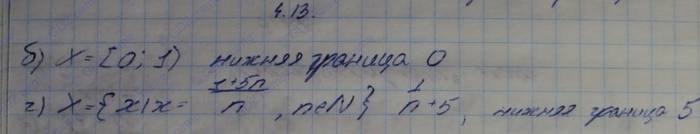 4.13.
б) X = [0; 1) нижняя граница 0
г) X = {x | x = (1+5n)/n, n∈N} 1/n+5, нижняя граница 5